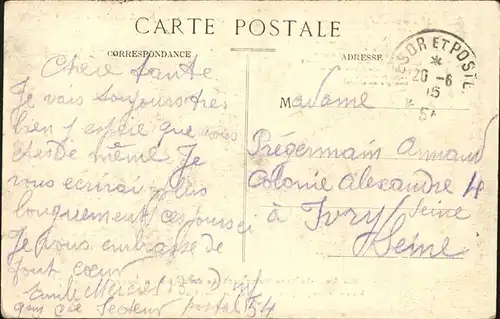 CARTE POSTALE
CORRESPONDANCE
ADRESSE
TRESOR ET POSTES
*
20-6
15
54
Chère tante
Je vais toujours très
bien j espère que vous
etes de même Je
vous ecrirai plus
longuement ces jours ci
Je vous embrasse de
tout cœur
Emile
Secteur postal 54
Madame
Prégermain Armand
Colonie Alexandre 4
à Ivry / Seine
Seine